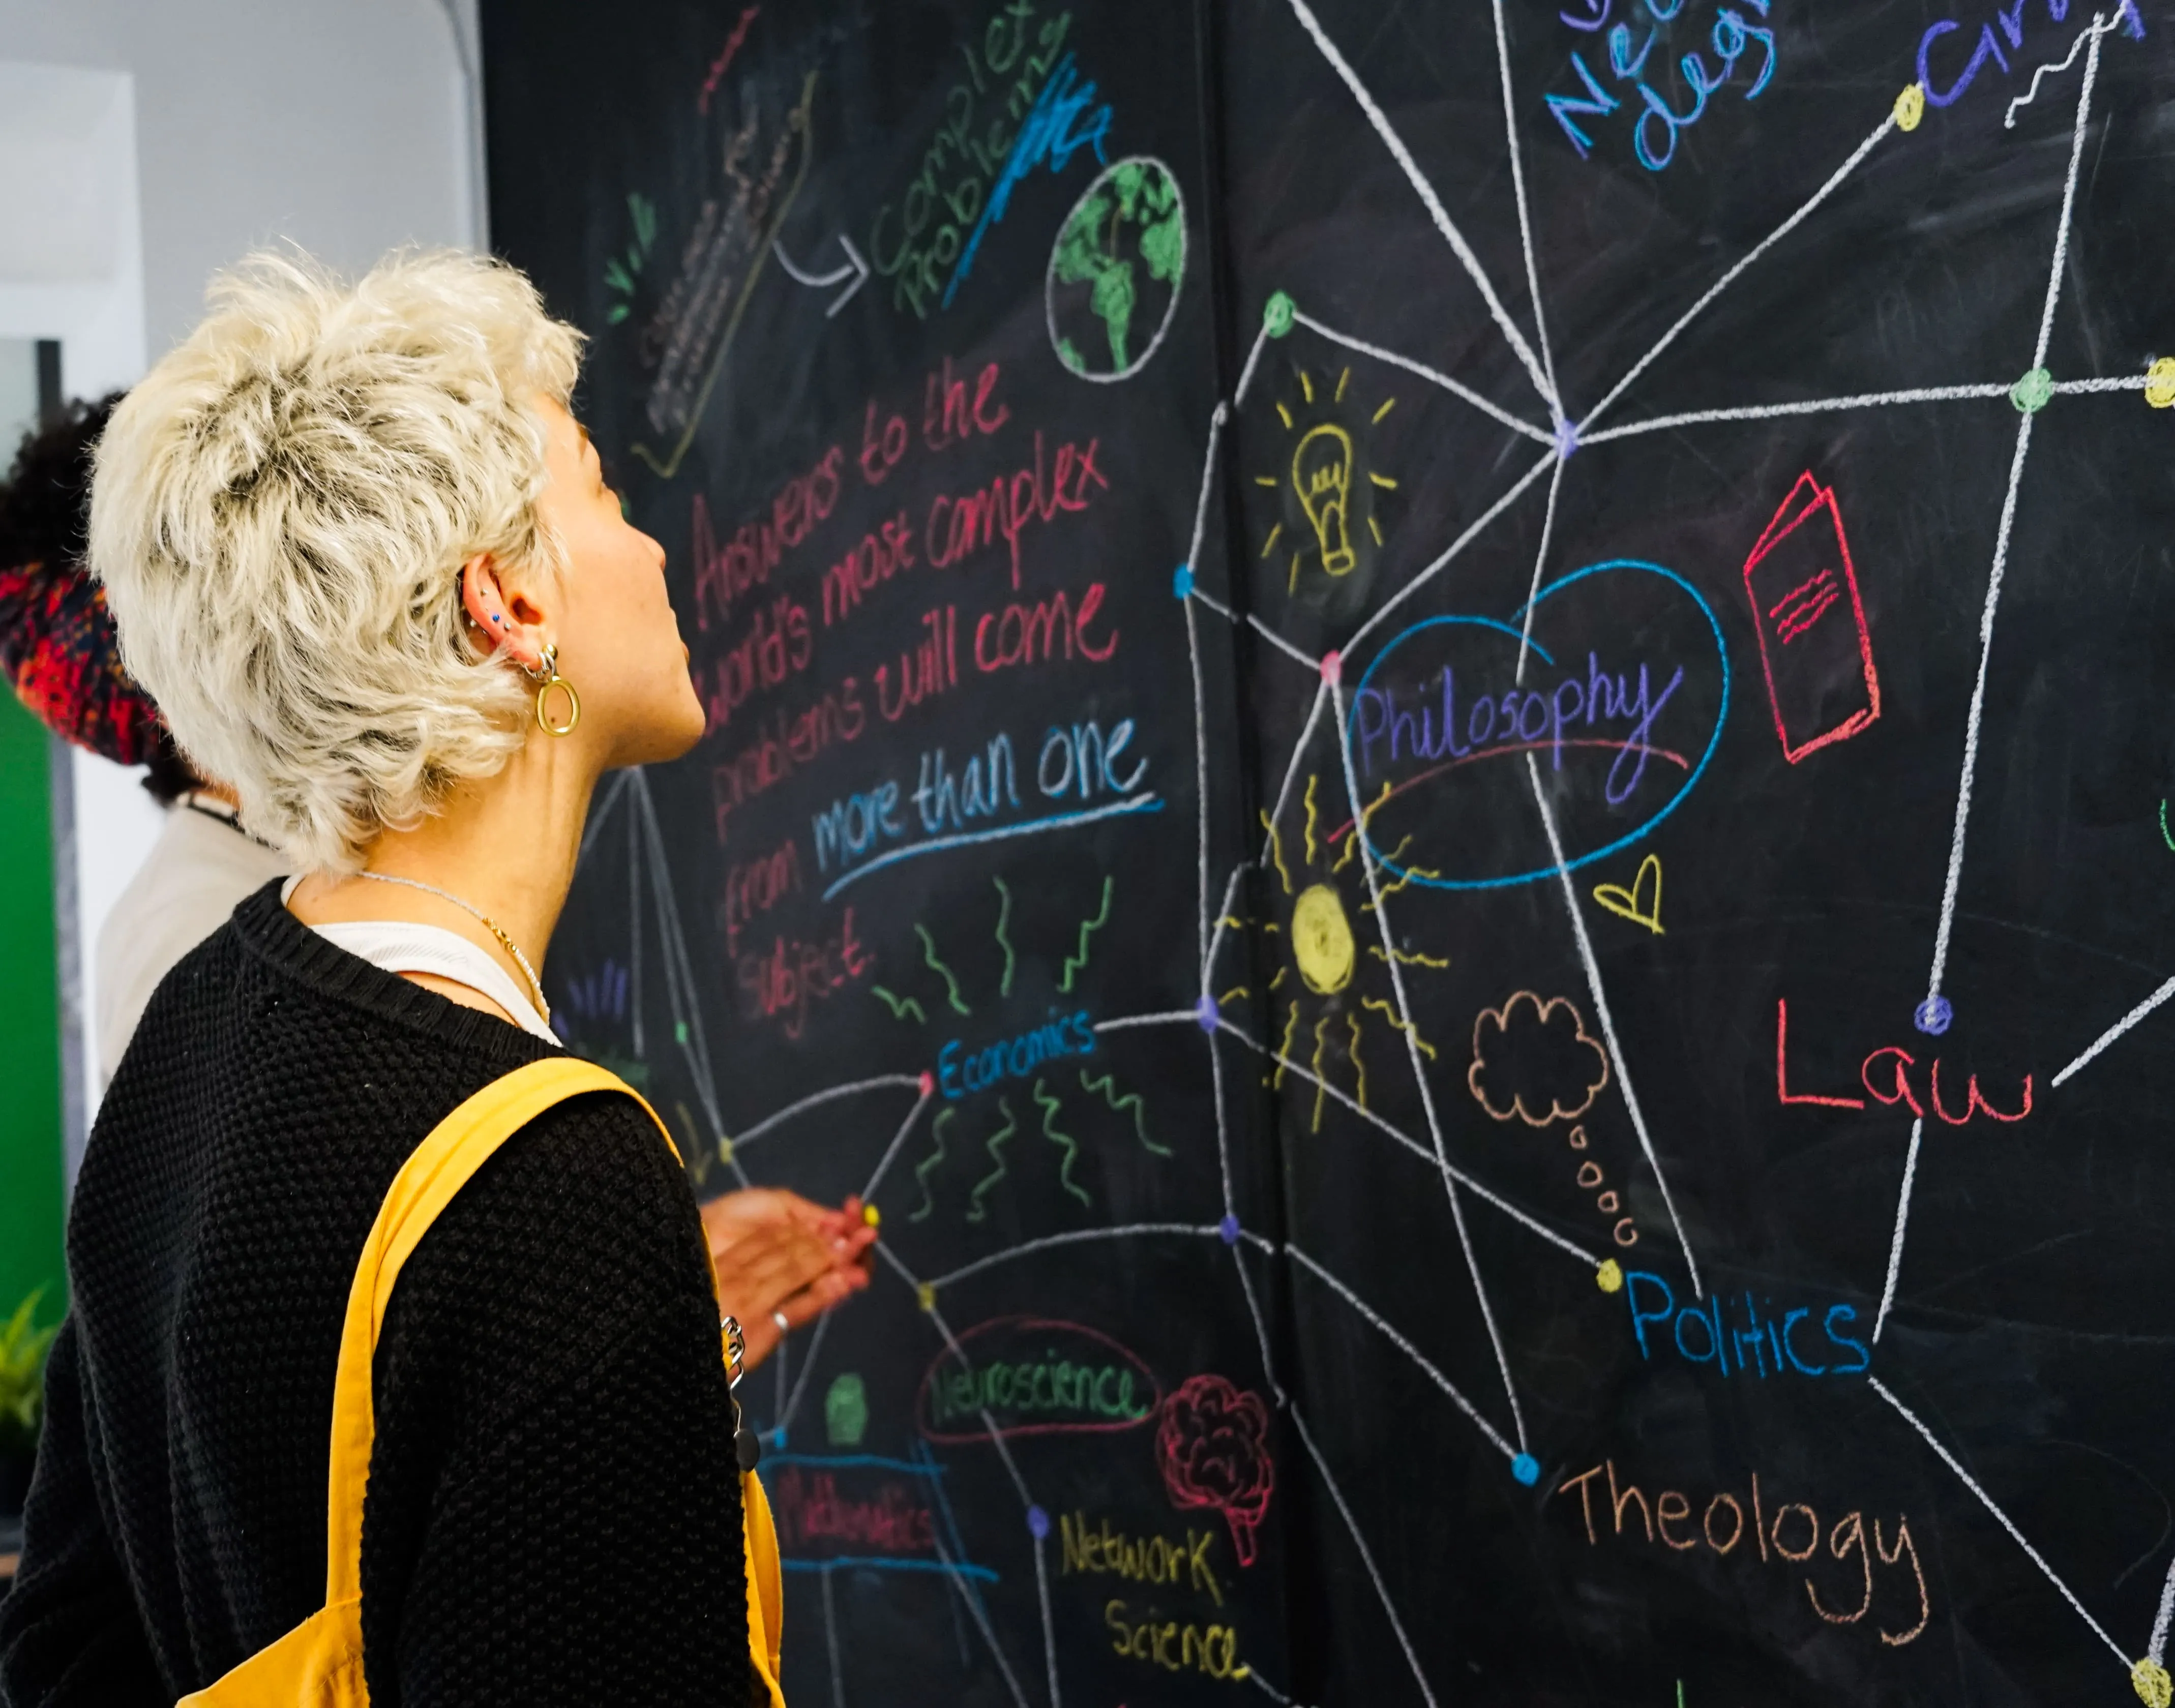 Complety
Problem
Answers to the
world's most complex
problems will come
from more than one
subject.
Philosophy
Economics
Law
Politics
Neuroscience
Mathematics
Theology
Network
Science